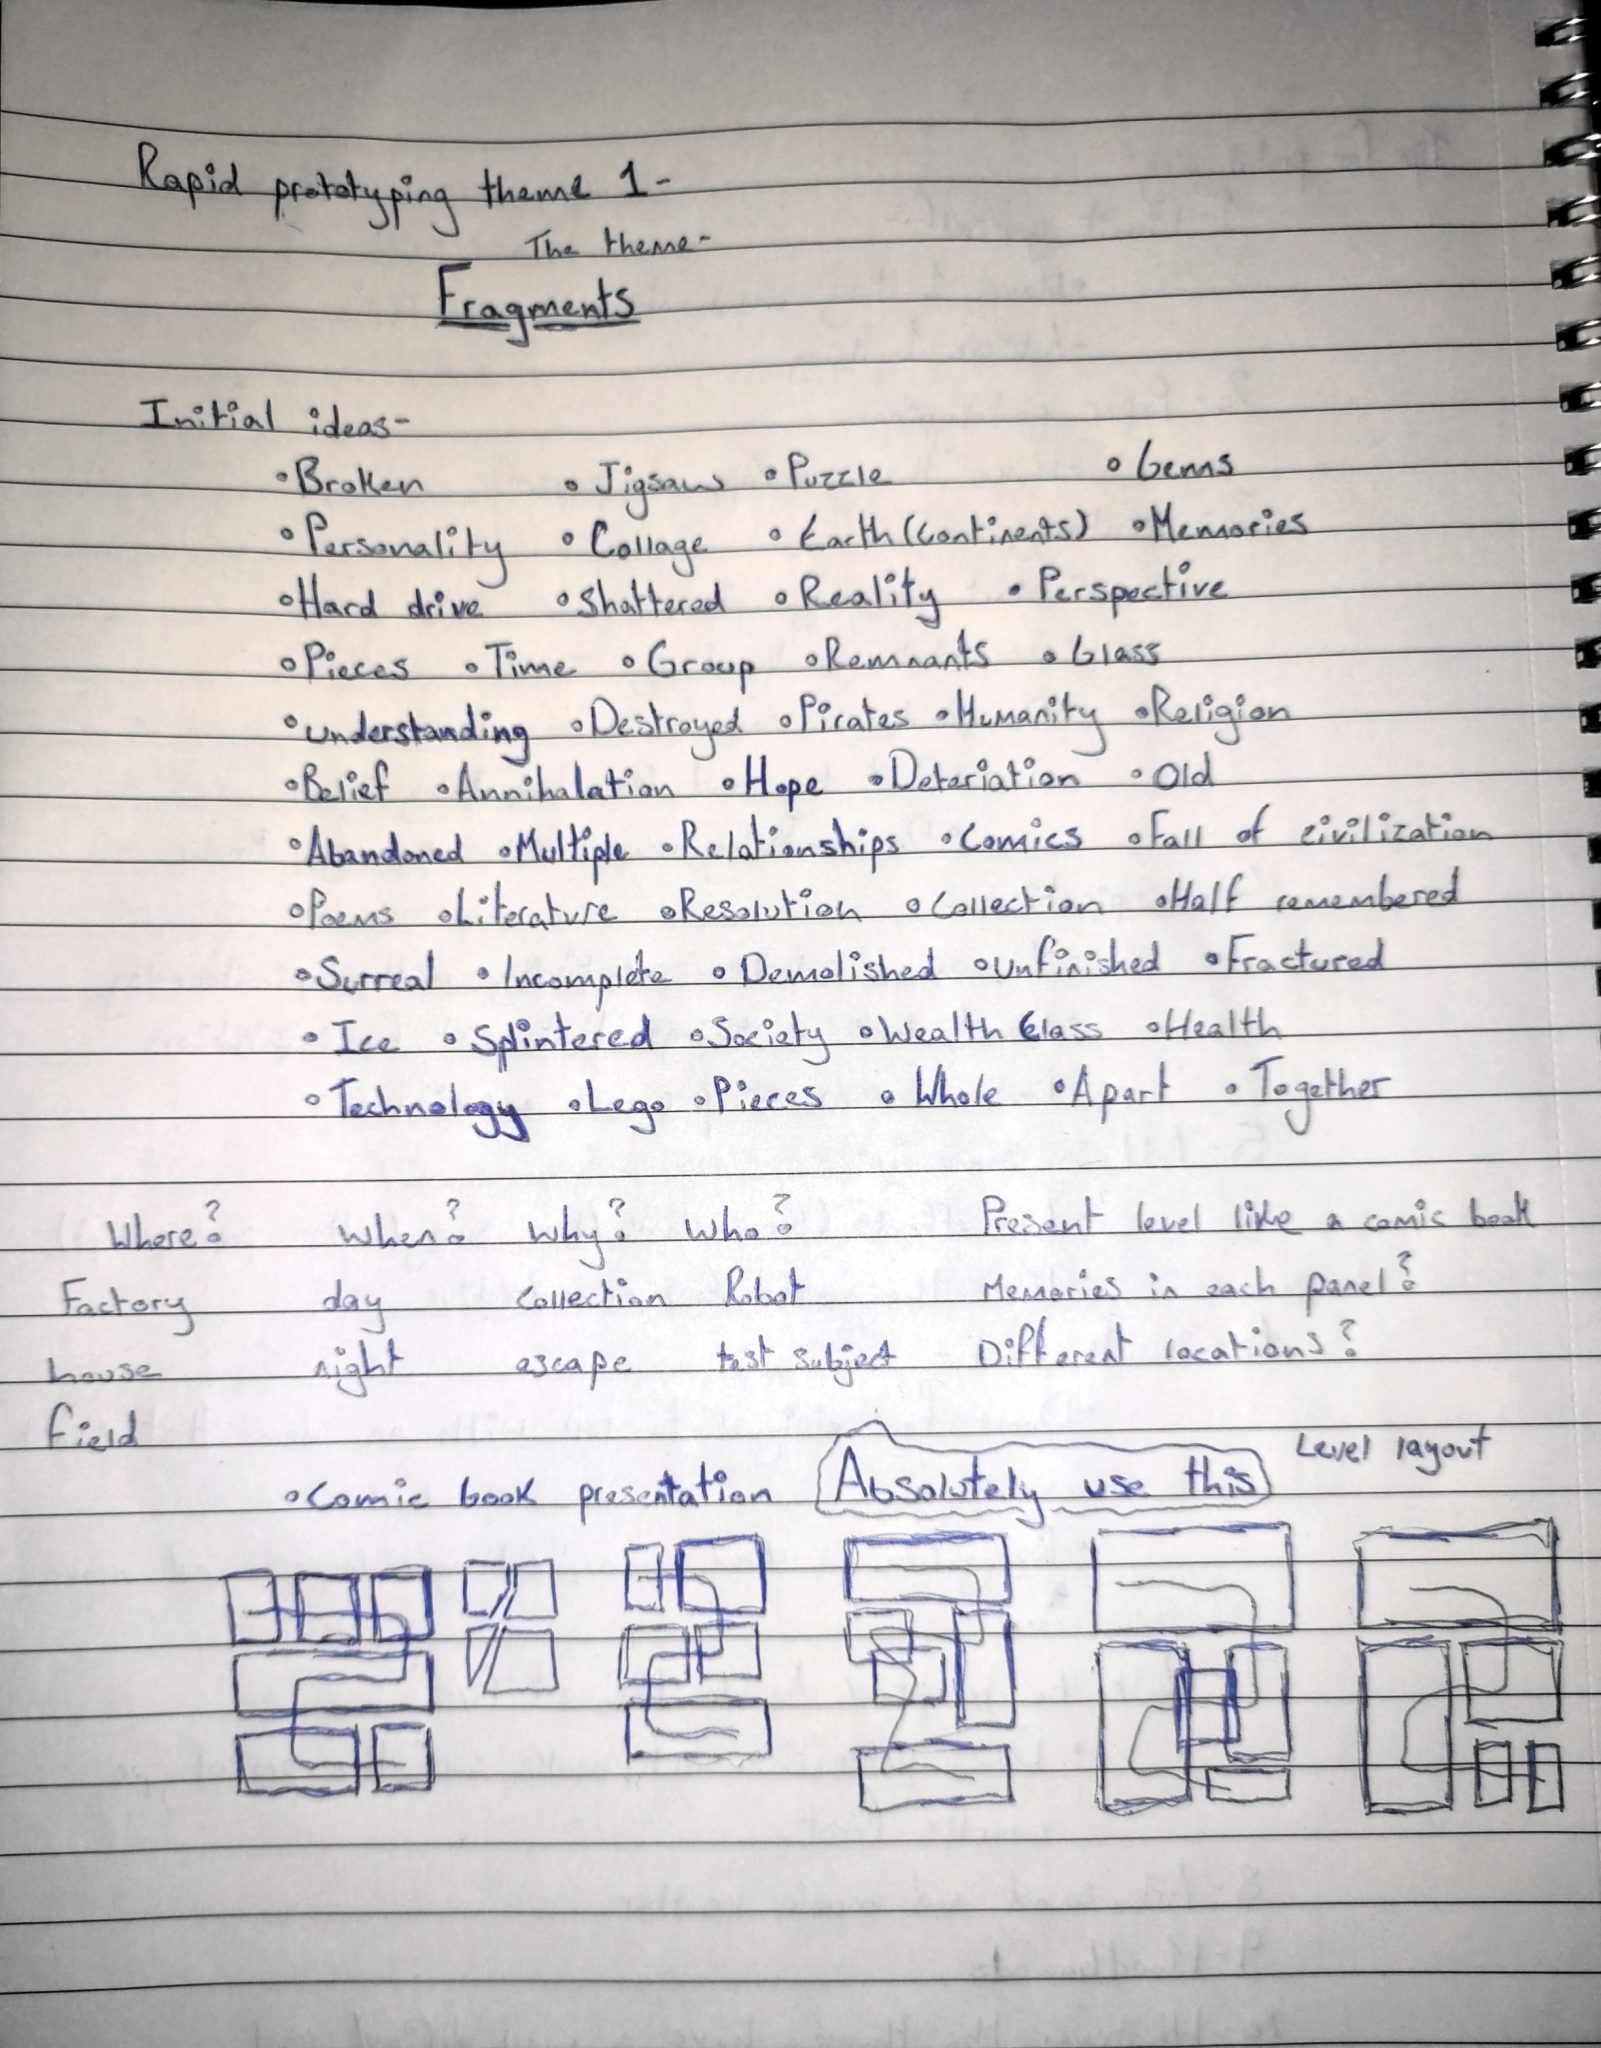 Rapid prototyping theme 1-
The theme-
Fragments
Initial ideas-
•Broken •Jigsaw •Puzzle •Gems
•Personality •Collage •Earth (continents) •Memories
•Hard drive •Shattered •Reality •Perspective
•Pieces •Time •Group •Remnants •Glass
•understanding •Destroyed •Pirates •Humanity •Religion
•Belief •Annihalation •Hope •Detariation •Old
•Abandoned •Multiple •Relationships •Comics •Fall of civilization
•Poems •Literature •Resolution •Collection •Half remembered
•Surreal •Incomplete •Demolished •unfinished •Fractured
•Ice •Splintered •Society •Wealth Class •Health
•Technology •Lego •Pieces •Whole •Apart •Together
Where? When? Why? Who? Present level like a comic book
Factory day collection Robot Memories in each panel?
house night escape test subject Different locations?
field
•Comic book presentation Absolutely use this Level layout